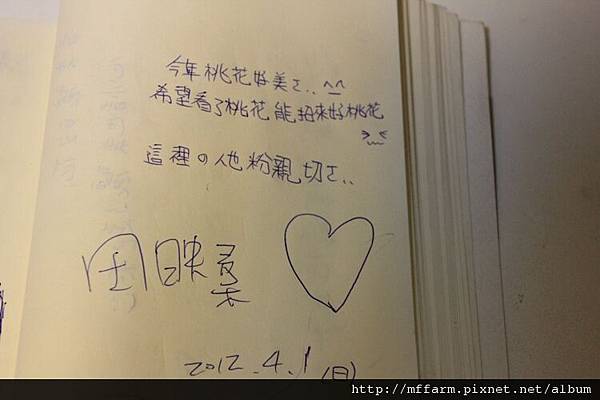 今年桃花好美ㄛ.. ^^
希望看了桃花能招來好桃花
>.<
這裡の人也粉親切ㄛ..
2012.4.1 (日)
http://mffarm.pixnet.net/album